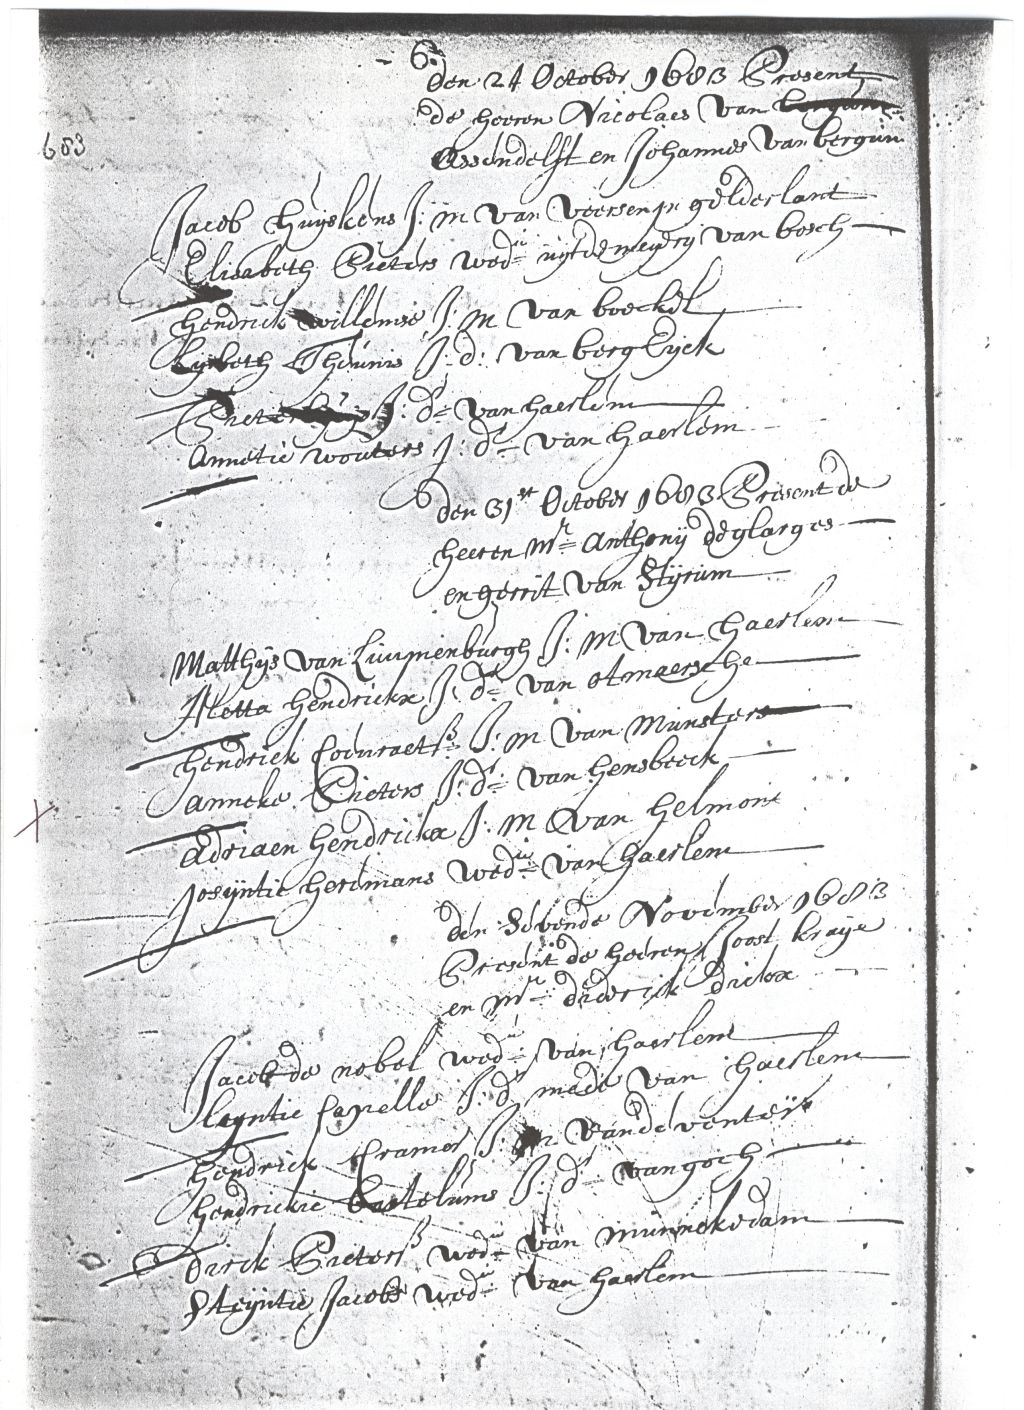 den 24 October 1683 Present
683
de heeren Nicolaes van
Assendelft en Johannes van bergum
Jacob Huijskens J: m van Veersen in gelderlant
Elisabeth Pieters wedu uijt de meijerij van bosch
Hendrick willemse J: m van boeckel
Lijsbeth Theunis J: d: van berg Eyck
Pieter J: d van haerlem
Annetie wouters J: d van haerlem
den 31st October 1683 Present de
heeren Mr Anthonij de glarges
en gerrit van Stijrum
Matthijs van Luijmenburgh J: m van haerlem
Aletta hendrickx J: d van otmaersche
hendrick Coenraets J: m van Munster
anneke Pieters J: d van hensbeeck
Adriaen hendrickx J: m van helmont
Josijntie hermans wedu van haerlem
den Sevende November 1683
Present de heeren Joost kraije
en Mr diderick dicx
Jacob de nobel wedu van haerlem
leijntie Capelle J: d mede van haerlem
hendrick Cramer J: m van deventer
hendrickie Bartelums J: d van goch
Dirck Pieters wedu van munnekedam
Steijntie Jacobs wedu van haerlem